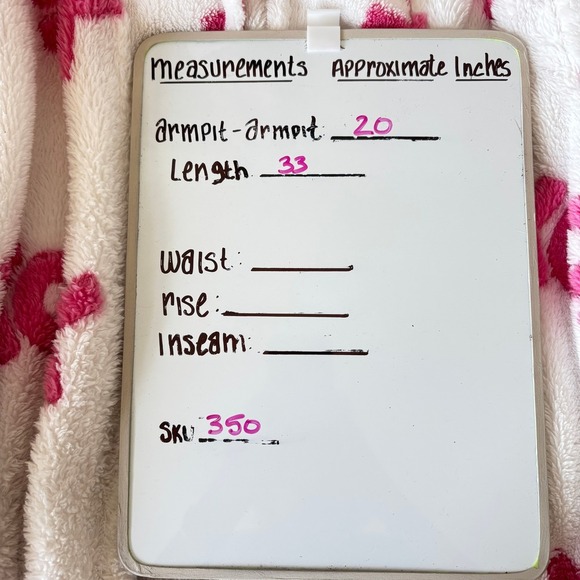 measurements Approximate Inches
armpit-armpit: 20
Length 33
waist:
rise:
Inseam:
SKU 350